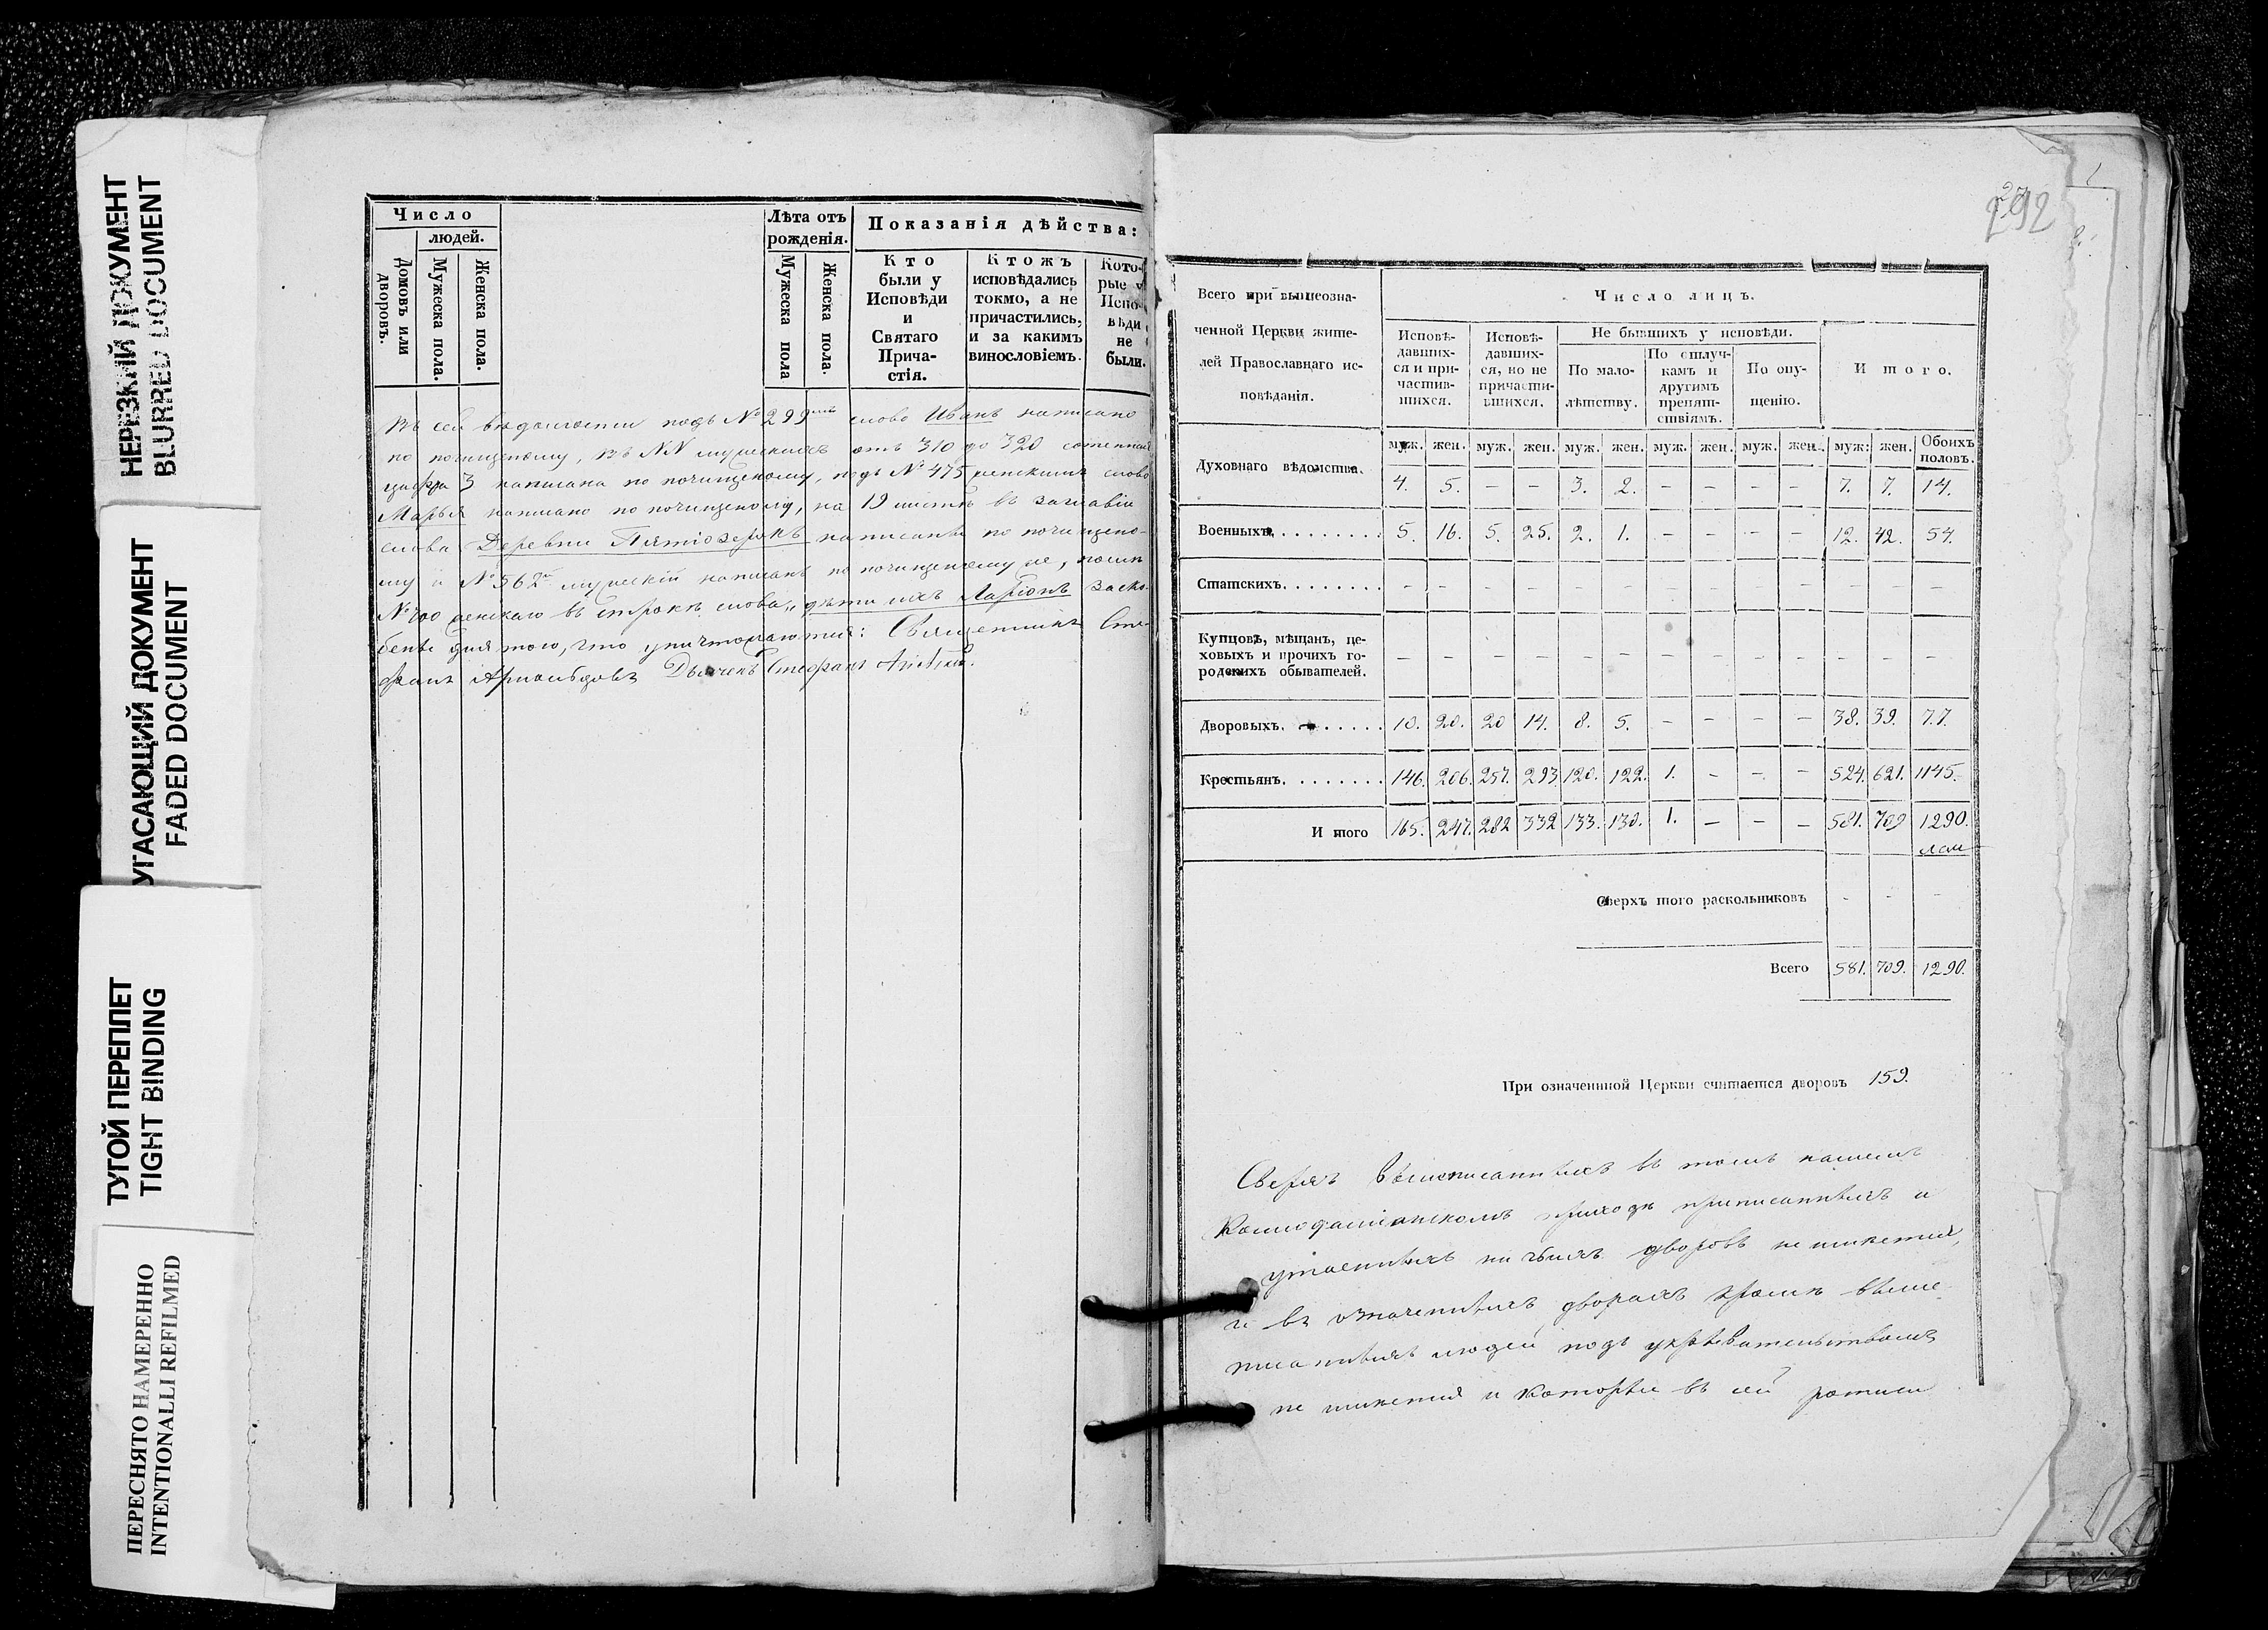 НЕРЕЗКИЙ ДОКУМЕНТ
BLURRED DOCUMENT
УГАСАЮЩИЙ ДОКУМЕНТ
FADED DOCUMENT
ТУГОЙ ПЕРЕПЛЕТ
TIGHT BINDING
ПЕРЕСНЯТО НАМЕРЕННО
INTENTIONALLI REFILMED
Число
людей.
Домовъ или дворовъ.
Мужеска пола.
Женска пола.
Лѣта отъ рожденія.
Мужеска пола
Женска пола.
Показанія дѣйства:
Кто были у Исповѣди и Святаго Причастія.
Ктожъ исповѣдались токмо, а не причастились, и за какимъ винословіемъ.
Которые у Исповѣди не были.
Въ сей ведомости подъ № 299 слово Иванъ написано
по почищеному, въ NN мужескихъ отъ 310 до 320 сотенная
цыфра 3 написана по почищеному, подъ № 475 женскимъ слово
Марья написано по почищеному, на 19 листѣ въ заглавіи
слова Деревни Пятіозерокъ написаны по почищено-
му и № 562й мужескій написанъ по почищеному же,
№ 700 женскаго въ строкѣ слова „дѣти ихъ Ларіонъ
того, что уничтожаются: Священникъ Сте-
фанъ Дьячекъ Стефанъ
292
Всего при вышеозна-
ченной Церкви жите-
лей Православнаго ис-
повѣданія.
Число лицъ.
Исповѣ-давших-ся и при-частив-шихся.
Исповѣ-давших-ся, но не причасти-вшихся.
Не бывшихъ у исповѣди.
По мало-лѣтству.
По отлуч-камъ и другимъ препят-ствіямъ.
По опу-щенію.
И того.
муж. жен. муж. жен. муж. жен. муж. жен. муж. жен. муж: жен. Обоихъ половъ.
Духовнаго вѣдомства. 4. 5. – – 3. 2. – – – – 7. 7. 14.
Военныхъ. 5. 16. 5. 25. 2. 1. – – – – 12. 42. 54.
Статскихъ. – – – – – – – – – – – – –
Купцовъ, мѣщанъ, це-
ховыхъ и прочихъ го-
родскихъ обывателей. – – – – – – – – – – – – –
Дворовыхъ. 10. 20. 20 14. 8. 5. – – – – 38. 39. 77.
Крестьянъ. 146. 206. 257. 293 120. 122. 1. – – – 524. 621. 1145.
И того 165. 247. 282 332 133. 130. 1. – – – 581. 709 1290.
Сверхъ того раскольниковъ - - -
Всего 581. 709. 1290.
При означенной Церкви считается дворовъ 159.
Сверхъ вышеписанныхъ въ томъ нашемъ
Космодаміанскомъ приходѣ приписанныхъ и
утаенныхъ ни чьихъ дворовъ не имѣется,
и въ означенныхъ дворахъ кромѣ выше-
писанныхъ людей подъ укрывательствомъ
не имѣется и которые въ сей росписи